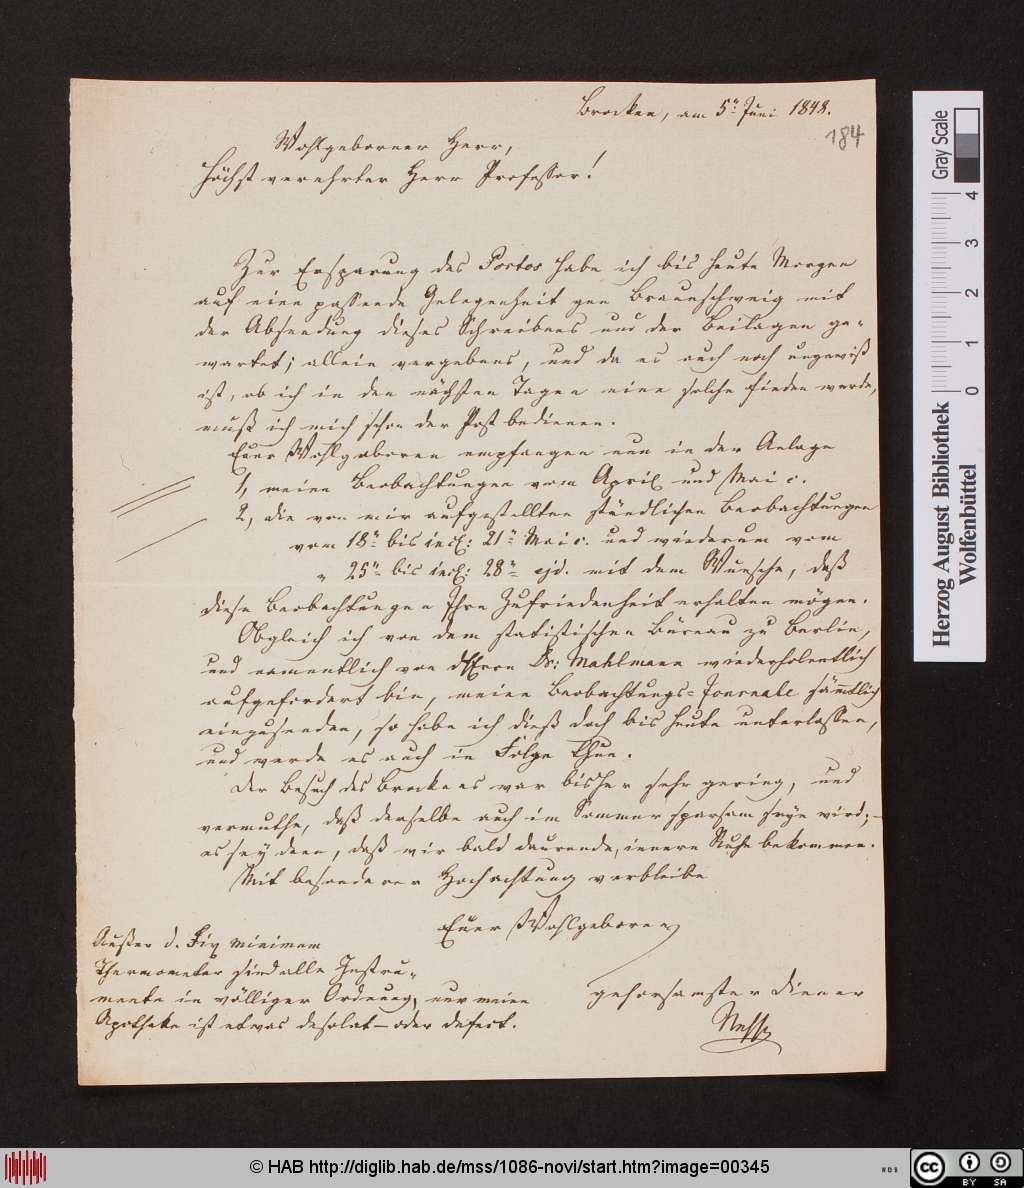 Brocken, am 5n Juni 1848.
184
Wohlgeborner Herr,
Höchst verehrter Herr Professor!
Zur Ersparung des Portos habe ich bis heute Morgen
auf eine passende Gelegenheit gen Braunschweig mit
der Absendung dieses Schreibens und der Beilagen ge-
wartet; allein vergebens, und da es auch noch ungewiß
ist, ob ich in den nächsten Tagen eine solche finden werde,
muß ich mich schon der Post bedienen.
Euer Wohlgeboren empfangen nun in der Anlage
1, meine Beobachtungen vom April und Mai c.
2, die von mir aufgestellten stündlichen Beobachtungen
vom 18n bis incl: 21n Mai c. und wiederum vom
" 25n bis incl: 28n ejd. mit dem Wunsche, daß
diese Beobachtungen Ihre Zufriedenheit erhalten mögen.
Obgleich ich von dem statistischen Büreau zu Berlin,
und namentlich von dem Herrn Dr: Mahlmann wiederholentlich
aufgefordert bin, meine Beobachtungs-Journale sämmtlich
einzusenden, so habe ich dieß doch bis heute unterlassen,
und werde es auch in Folge thun.
Der Besuch des Brockens war bisher sehr gering, und
vermuthe, daß derselbe auch im Sommer sparsam seyn wird; –
es sey denn, daß wir bald daurende, innere Ruhe bekommen.
Mit besonderer Hochachtung verbleibe
Euer Wohlgeboren
gehorsamster Diener
Nehse
Außer d. Fix minimum
Thermometer sind alle Instru-
mente in völliger Ordnung, nur meine
Apotheke ist etwas desolat – oder defect.
Gray Scale
0 1 2 3 4
Herzog August Bibliothek
Wolfenbüttel
© HAB http://diglib.hab.de/mss/1086-novi/start.htm?image=00345
WDB
cc BY SA